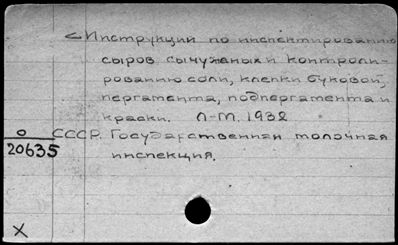 < Инструкции по инспектированию
сыров сычужных и контроли-
рованию соли, клепки буковой,
пергамента, подпергамента и
краски. Л-М. 1932
О СССР. Государственная молочная
20635 инспекция.
X